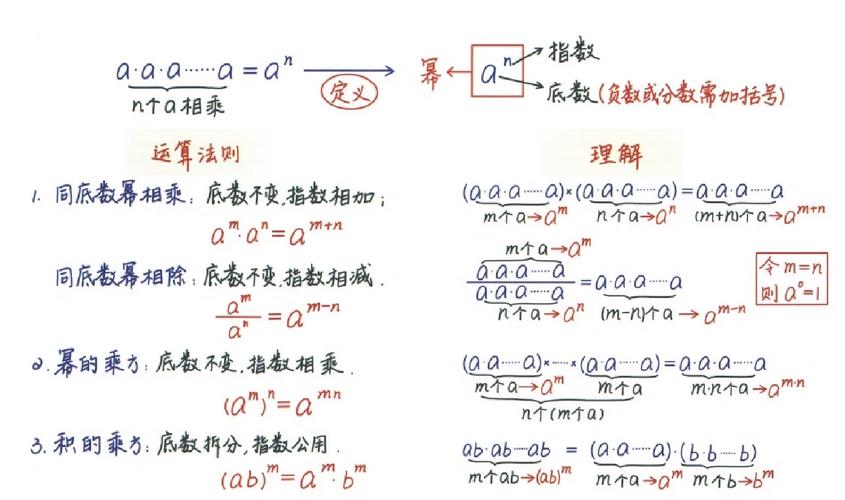 a·a·a……a = aⁿ
n个a相乘
定义
幂 ← aⁿ
指数
底数(负数或分数需加括号)
运算法则
1. 同底数幂相乘：底数不变,指数相加；
aᵐ·aⁿ=aᵐ⁺ⁿ
同底数幂相除：底数不变,指数相减.
aᵐ/aⁿ = aᵐ⁻ⁿ
2. 幂的乘方：底数不变,指数相乘.
(aᵐ)ⁿ=aᵐⁿ
3. 积的乘方：底数拆分,指数公用.
(ab)ᵐ=aᵐ·bᵐ
理解
(a·a·a……a)×(a·a·a……a)=a·a·a……a
m个a→aᵐ n个a→aⁿ (m+n)个a→aᵐ⁺ⁿ
m个a→aᵐ
a·a·a……a / a·a·a……a = a·a·a……a
n个a→aⁿ (m-n)个a→aᵐ⁻ⁿ
令m=n
则a⁰=1
(a·a……a)×……×(a·a……a)=a·a·a……a
m个a→aᵐ m个a m·n个a→aᵐ·ⁿ
n个(m个a)
ab·ab……ab = (a·a……a)·(b·b……b)
m个ab→(ab)ᵐ m个a→aᵐ m个b→bᵐ